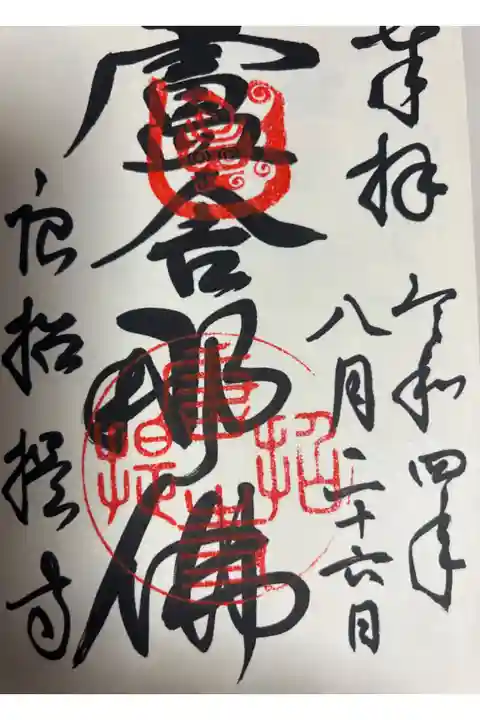 奉拝
令和四年
八月二十六日
盧舎那佛
唐招提寺
唐招提寺